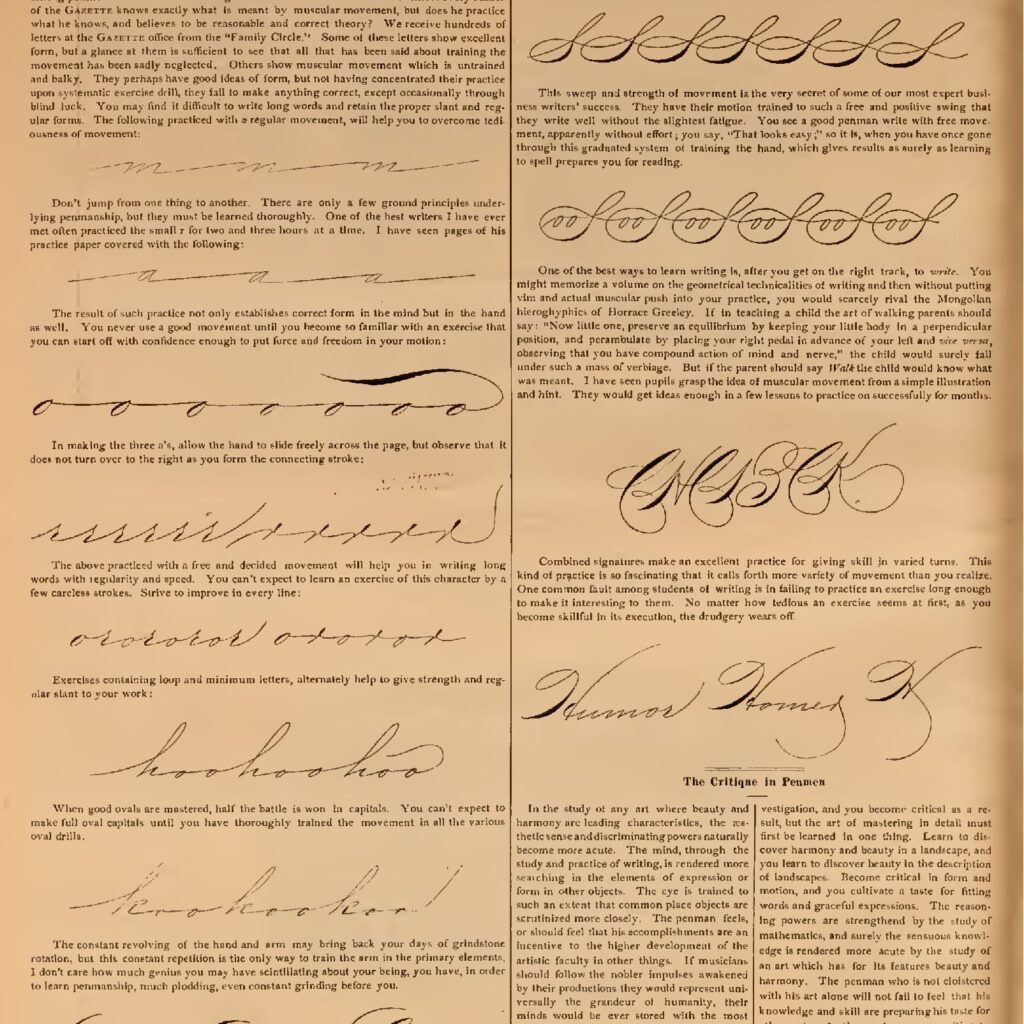 of the GAZETTE knows exactly what is meant by muscular movement, but does he practice
what he knows, and believes to be reasonable and correct theory? We receive hundreds of
letters at the GAZETTE office from the "Family Circle." Some of these letters show excellent
form, but a glance at them is sufficient to see that all that has been said about training the
movement has been sadly neglected. Others show muscular movement which is untrained
and balky. They perhaps have good ideas of form, but not having concentrated their practice
upon systematic exercise drill, they fail to make anything correct, except occasionally through
blind luck. You may find it difficult to write long words and retain the proper slant and reg-
ular forms. The following practiced with a regular movement, will help you to overcome tedi-
ousness of movement:
m m m
Don't jump from one thing to another. There are only a few ground principles under-
lying penmanship, but they must be learned thoroughly. One of the best writers I have ever
met often practiced the small r for two and three hours at a time. I have seen pages of his
practice paper covered with the following:
a a a
The result of such practice not only establishes correct form in the mind but in the hand
as well. You never use a good movement until you become so familiar with an exercise that
you can start off with confidence enough to put force and freedom in your motion:
o o o o o o o
In making the three a's, allow the hand to slide freely across the page, but observe that it
does not turn over to the right as you form the connecting stroke:
The above practiced with a free and decided movement will help you in writing long
words with regularity and speed. You can't expect to learn an exercise of this character by a
few careless strokes. Strive to improve in every line:
Exercises containing loup and minimum letters, alternately help to give strength and reg-
ular slant to your work:
When good ovals are mastered, half the battle is won in capitals. You can't expect to
make full oval capitals until you have thoroughly trained the movement in all the various
oval drills.
The constant revolving of the hand and arm may bring back your days of grindstone
rotation, but this constant repetition is the only way to train the arm in the primary elements.
I don't care how much genius you may have scintillating about your being, you have, in order
to learn penmanship, much plodding, even constant grinding before you.
This sweep and strength of movement is the very secret of some of our most expert busi-
ness writers' success. They have their motion trained to such a free and positive swing that
they write well without the slightest fatigue. You see a good penman write with free move-
ment, apparently without effort; you say, "That looks easy;" so it is, when you have once gone
through this graduated system of training the hand, which gives results as surely as learning
to spell prepares you for reading.
One of the best ways to learn writing is, after you get on the right track, to write. You
might memorize a volume on the geometrical technicalities of writing and then without putting
vim and actual muscular push into your practice, you would scarcely rival the Mongolian
hieroglyphics of Horrace Greeley. If in teaching a child the art of walking parents should
say: "Now little one, preserve an equilibrium by keeping your little body in a perpendicular
position, and perambulate by placing your right pedal in advance of your left and vice versa,
observing that you have compound action of mind and nerve," the child would surely fall
under such a mass of verbiage. But if the parent should say Walk the child would know what
was meant. I have seen pupils grasp the idea of muscular movement from a simple illustration
and hint. They would get ideas enough in a few lessons to practice on successfully for months.
Combined signatures make an excellent practice for giving skill in varied turns. This
kind of practice is so fascinating that it calls forth more variety of movement than you realize.
One common fault among students of writing is in failing to practice an exercise long enough
to make it interesting to them. No matter how tedious an exercise seems at first, as you
become skillful in its execution, the drudgery wears off.
Humor Homer H
The Critique in Penmen
In the study of any art where beauty and
harmony are leading characteristics, the æs-
thetic sense and discriminating powers naturally
become more acute. The mind, through the
study and practice of writing, is rendered more
searching in the elements of expression or
form in other objects. The eye is trained to
such an extent that common place objects are
scrutinized more closely. The penman feels,
or should feel that his accomplishments are an
incentive to the higher development of the
artistic faculty in other things. If musicians
should follow the nobler impulses awakened
by their productions they would represent uni-
versally the grandeur of humanity, their
minds would be ever stored with the most
vestigation, and you become critical as a re-
sult, but the art of mastering in detail must
first be learned in one thing. Learn to dis-
cover harmony and beauty in a landscape, and
you learn to discover beauty in the description
of landscapes. Become critical in form and
motion, and you cultivate a taste for fitting
words and graceful expressions. The reason-
ing powers are strengthend by the study of
mathematics, and surely the sensuous knowl-
edge is rendered more acute by the study of
an art which has for its features beauty and
harmony. The penman who is not cloistered
with his art alone will not fail to feel that his
knowledge and skill are preparing his taste for